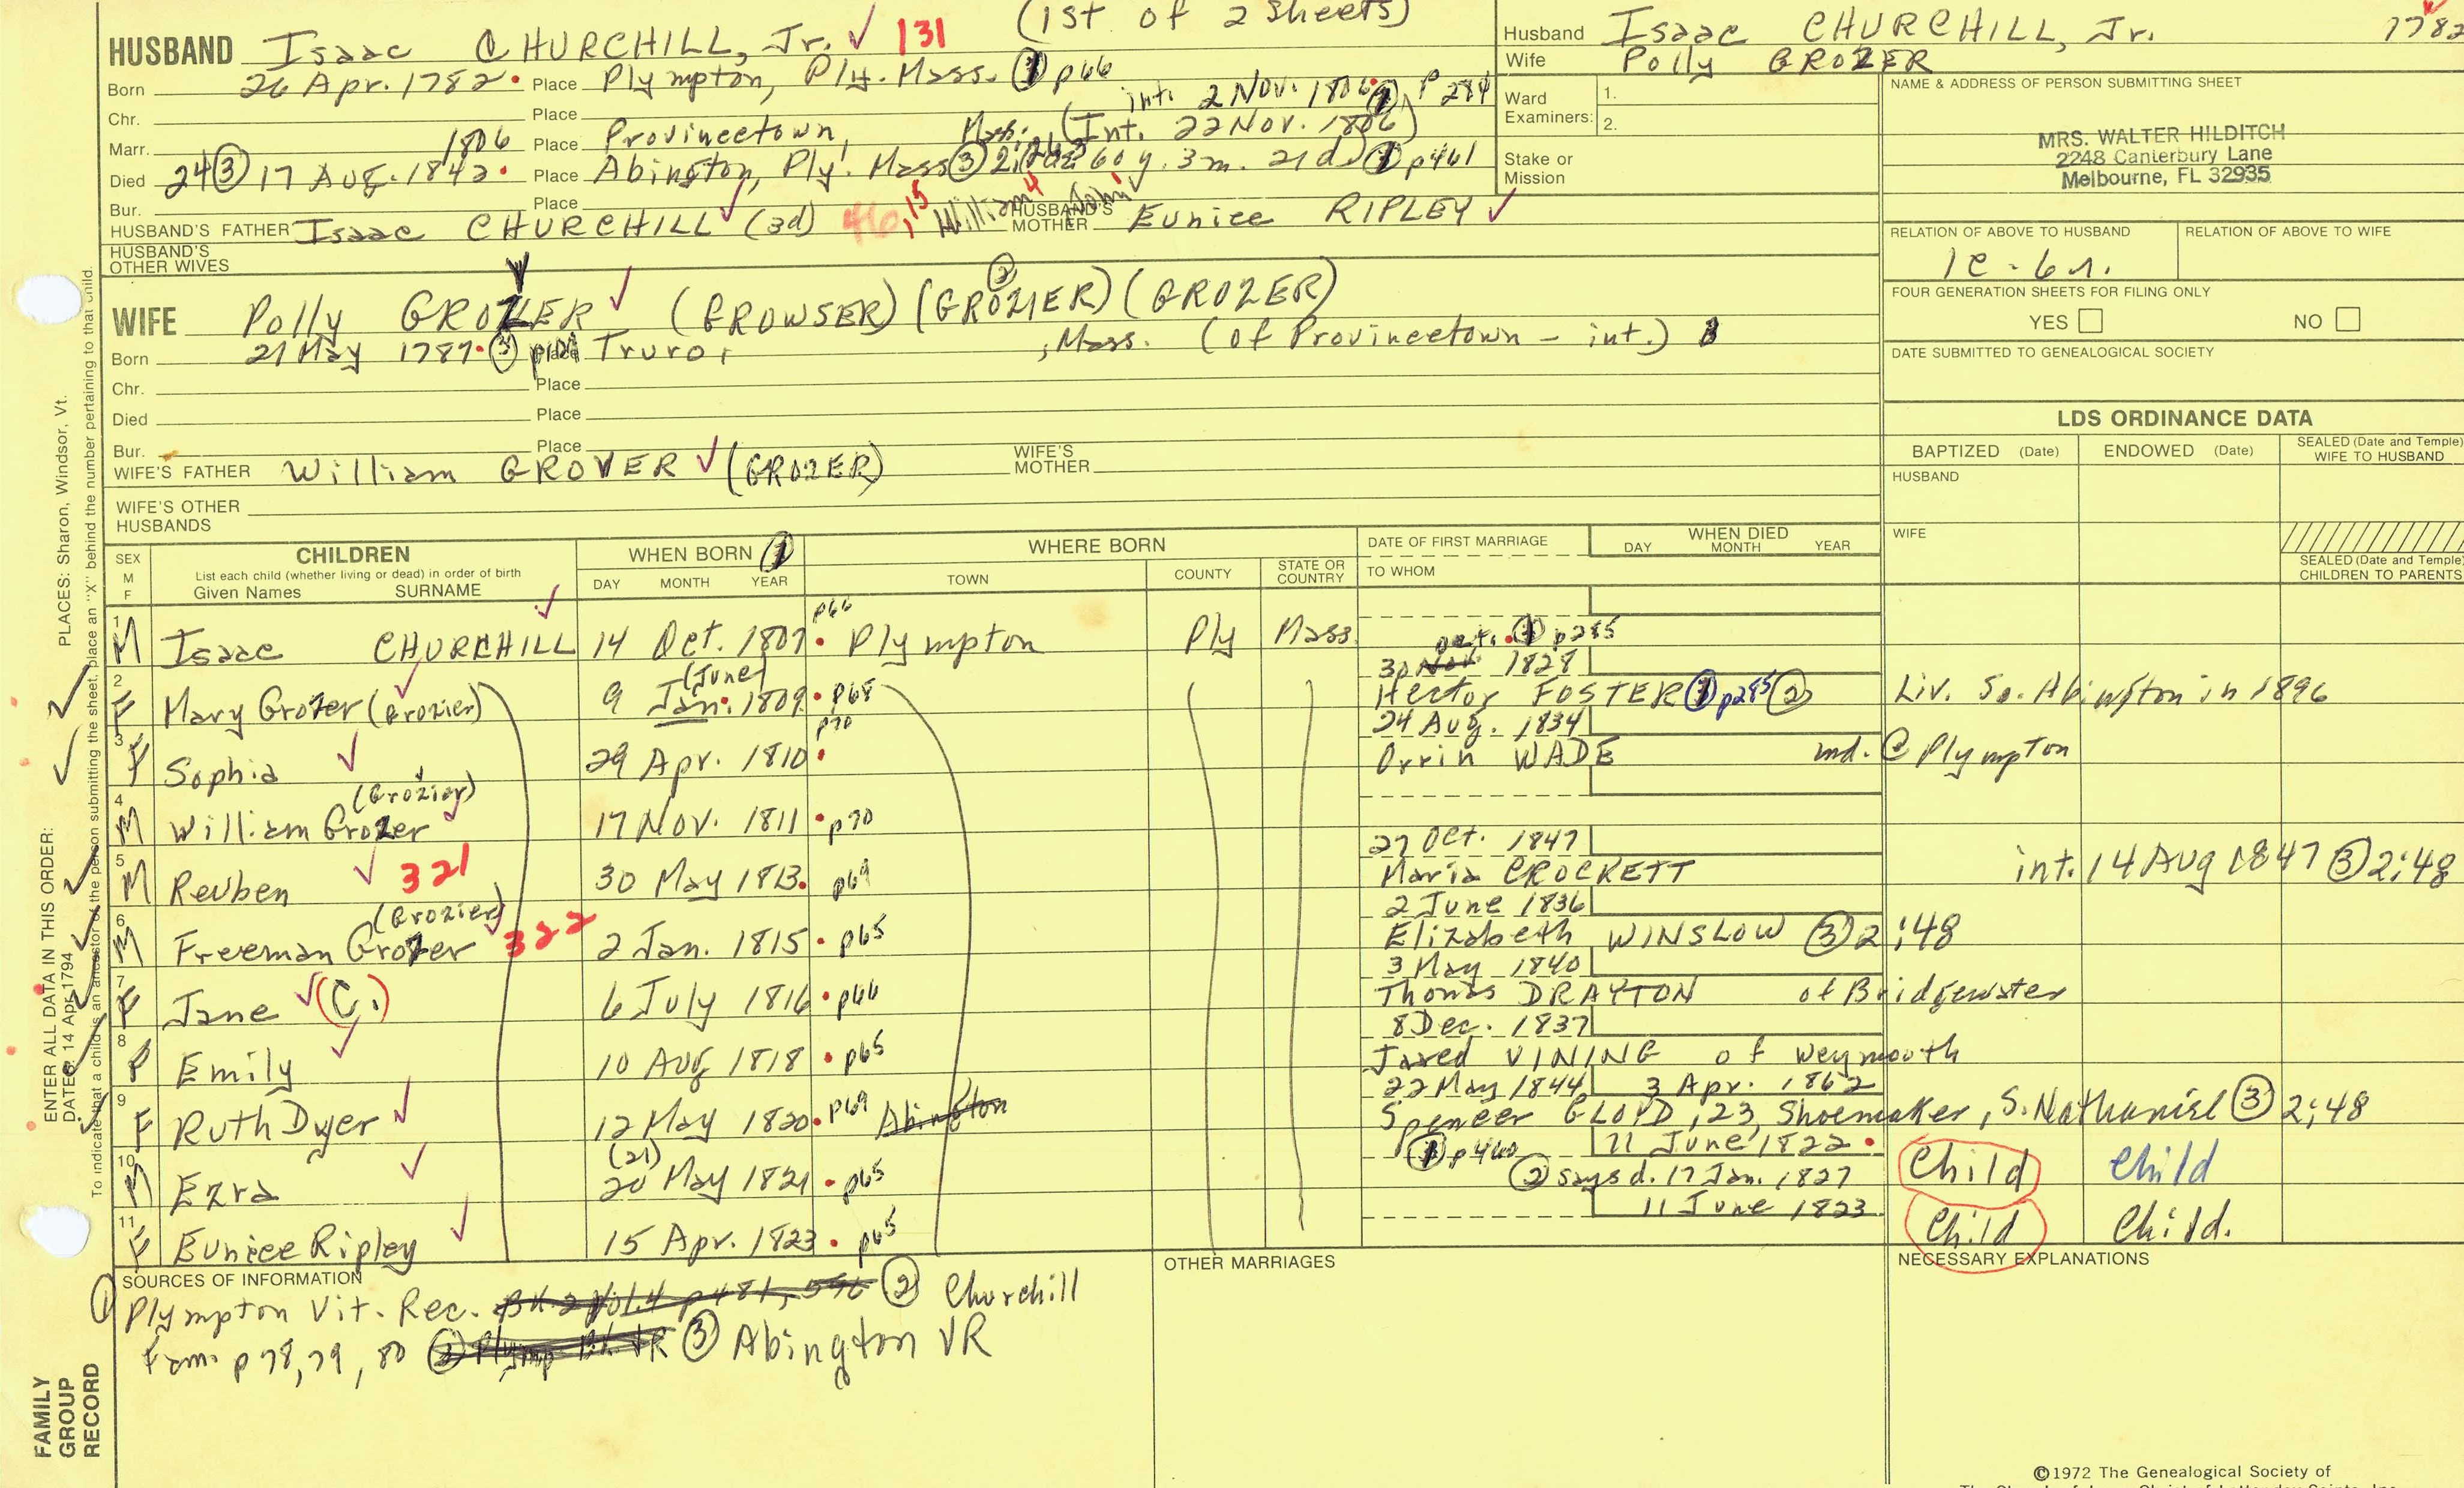 (1st of 2 sheets)
HUSBAND Isaac CHURCHILL, Jr. ✓ 131
Born 26 Apr. 1782 Place Plympton, Ply. Mass. ① p66
int. 2 Nov. 1806 ①, P 284
Chr. Place
(Int. 22 Nov. 1806)
Marr. 1806 Place Provincetown,
Died 24 ③ 17 Aug. 1842 Place Abington, Ply. Mass ③ 60 y. 3 m. 21 d. ① p461
Bur. Place
HUSBAND'S FATHER Isaac CHURCHILL ✓ (3d) 46, 15 William 4 John 1 HUSBAND'S MOTHER Eunice RIPLEY ✓
HUSBAND'S OTHER WIVES
WIFE Polly GROZER ✓ (GROWSER) (GROZIER) ② (GROZER)
Born 21 May 1787 ③ Place Truro, , Mass. (of Provincetown - int.)
Chr. Place
Died Place
Bur. Place
WIFE'S FATHER William GROVER ✓ (GROZER) WIFE'S MOTHER
WIFE'S OTHER HUSBANDS
Husband Isaac CHURCHILL, Jr. 1782
Wife Polly GROZER
Ward Examiners: 1.
2.
Stake or Mission
NAME & ADDRESS OF PERSON SUBMITTING SHEET
MRS. WALTER HILDITCH
2248 Canterbury Lane
Melbourne, FL 32935
RELATION OF ABOVE TO HUSBAND RELATION OF ABOVE TO WIFE
1c-6r.
FOUR GENERATION SHEETS FOR FILING ONLY
YES NO
DATE SUBMITTED TO GENEALOGICAL SOCIETY
LDS ORDINANCE DATA
BAPTIZED (Date) ENDOWED (Date) SEALED (Date and Temple) WIFE TO HUSBAND
HUSBAND
WIFE
SEALED (Date and Temple) CHILDREN TO PARENTS
SEX M F CHILDREN WHEN BORN ① WHERE BORN DATE OF FIRST MARRIAGE WHEN DIED
List each child (whether living or dead) in order of birth
Given Names SURNAME DAY MONTH YEAR TOWN COUNTY STATE OR COUNTRY TO WHOM DAY MONTH YEAR
1 M Isaac CHURCHILL ✓ 14 Oct. 1807 p66 Plympton Ply Mass.
2 F Mary Grozer (Grozier) ✓ 9 Jan. (June) 1809 p68 30 Nov. Oct. ① p285 1828 Hector FOSTER ① p285 ② Liv. So. Abington in 1896
3 F Sophia ✓ 29 Apr. 1810 p70 24 Aug. 1834 Orrin WADE md. @ Plympton
4 M William Grozer (Grozier) ✓ 17 Nov. 1811 p70
5 M Reuben ✓ 321 30 May 1813 p69 27 Oct. 1847 Maria CROCKETT int. 14 Aug 1847 ③ 2:48
6 M Freeman Grozer (Grozier) ✓ 322 2 Jan. 1815 p65 2 June 1836 Elizabeth WINSLOW ③ 2:48
7 F Jane ✓ (C.) 6 July 1816 p66 3 May 1840 Thomas DRAYTON of Bridgewater
8 F Emily ✓ 10 Aug 1818 p65 8 Dec. 1837 Jared VINING of Weymouth
9 F Ruth Dyer ✓ 12 May 1820 p69 Abington 22 May 1844 3 Apr. 1862 Spencer GLOYD, 23, Shoemaker, S. Nathaniel ③ 2:48
10 M Ezra ✓ 20 (21) May 1821 p65 ① p460 11 June 1822 ② says d. 17 Jan. 1827 Child Child
11 F Eunice Ripley ✓ 15 Apr. 1823 p65 11 June 1823 Child Child.
SOURCES OF INFORMATION OTHER MARRIAGES NECESSARY EXPLANATIONS
① Plympton Vit. Rec. Bk. 2 Vol. 4 p 481, 546 ② Churchill
Fam. p 78, 79, 80 ③ Abington VR
©1972 The Genealogical Society of
PLACES: Sharon, Windsor, Vt.
ENTER ALL DATA IN THIS ORDER:
DATES: 14 Apr. 1794
To indicate that a child is an ancestor of the person submitting the sheet, place an "X" behind the number pertaining to that child.
FAMILY
GROUP
RECORD